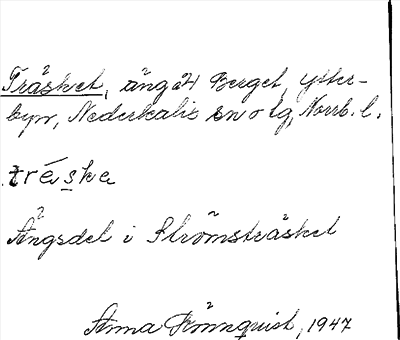 Träsket, äng åt Berget, Ytter-
byn, Nederkalix sn o tg, Norrb. l.
tréske
Ängsdel i Strömsträsket
Anna Rönnquist, 1947